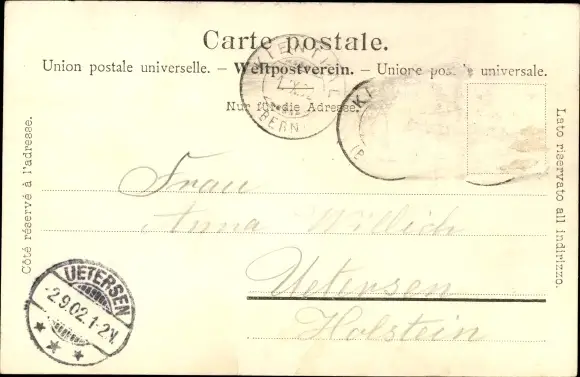 Carte postale.
Union postale universelle. – Weltpostverein. – Unione postale universale.
Nur für die Adresse.
BERN
KI
Côté réservé à l'adresse.
Lato riservato all indirizzo.
Frau
Anna Willich
Uetersen
Holstein
UETERSEN
2.9.02.1-2N.